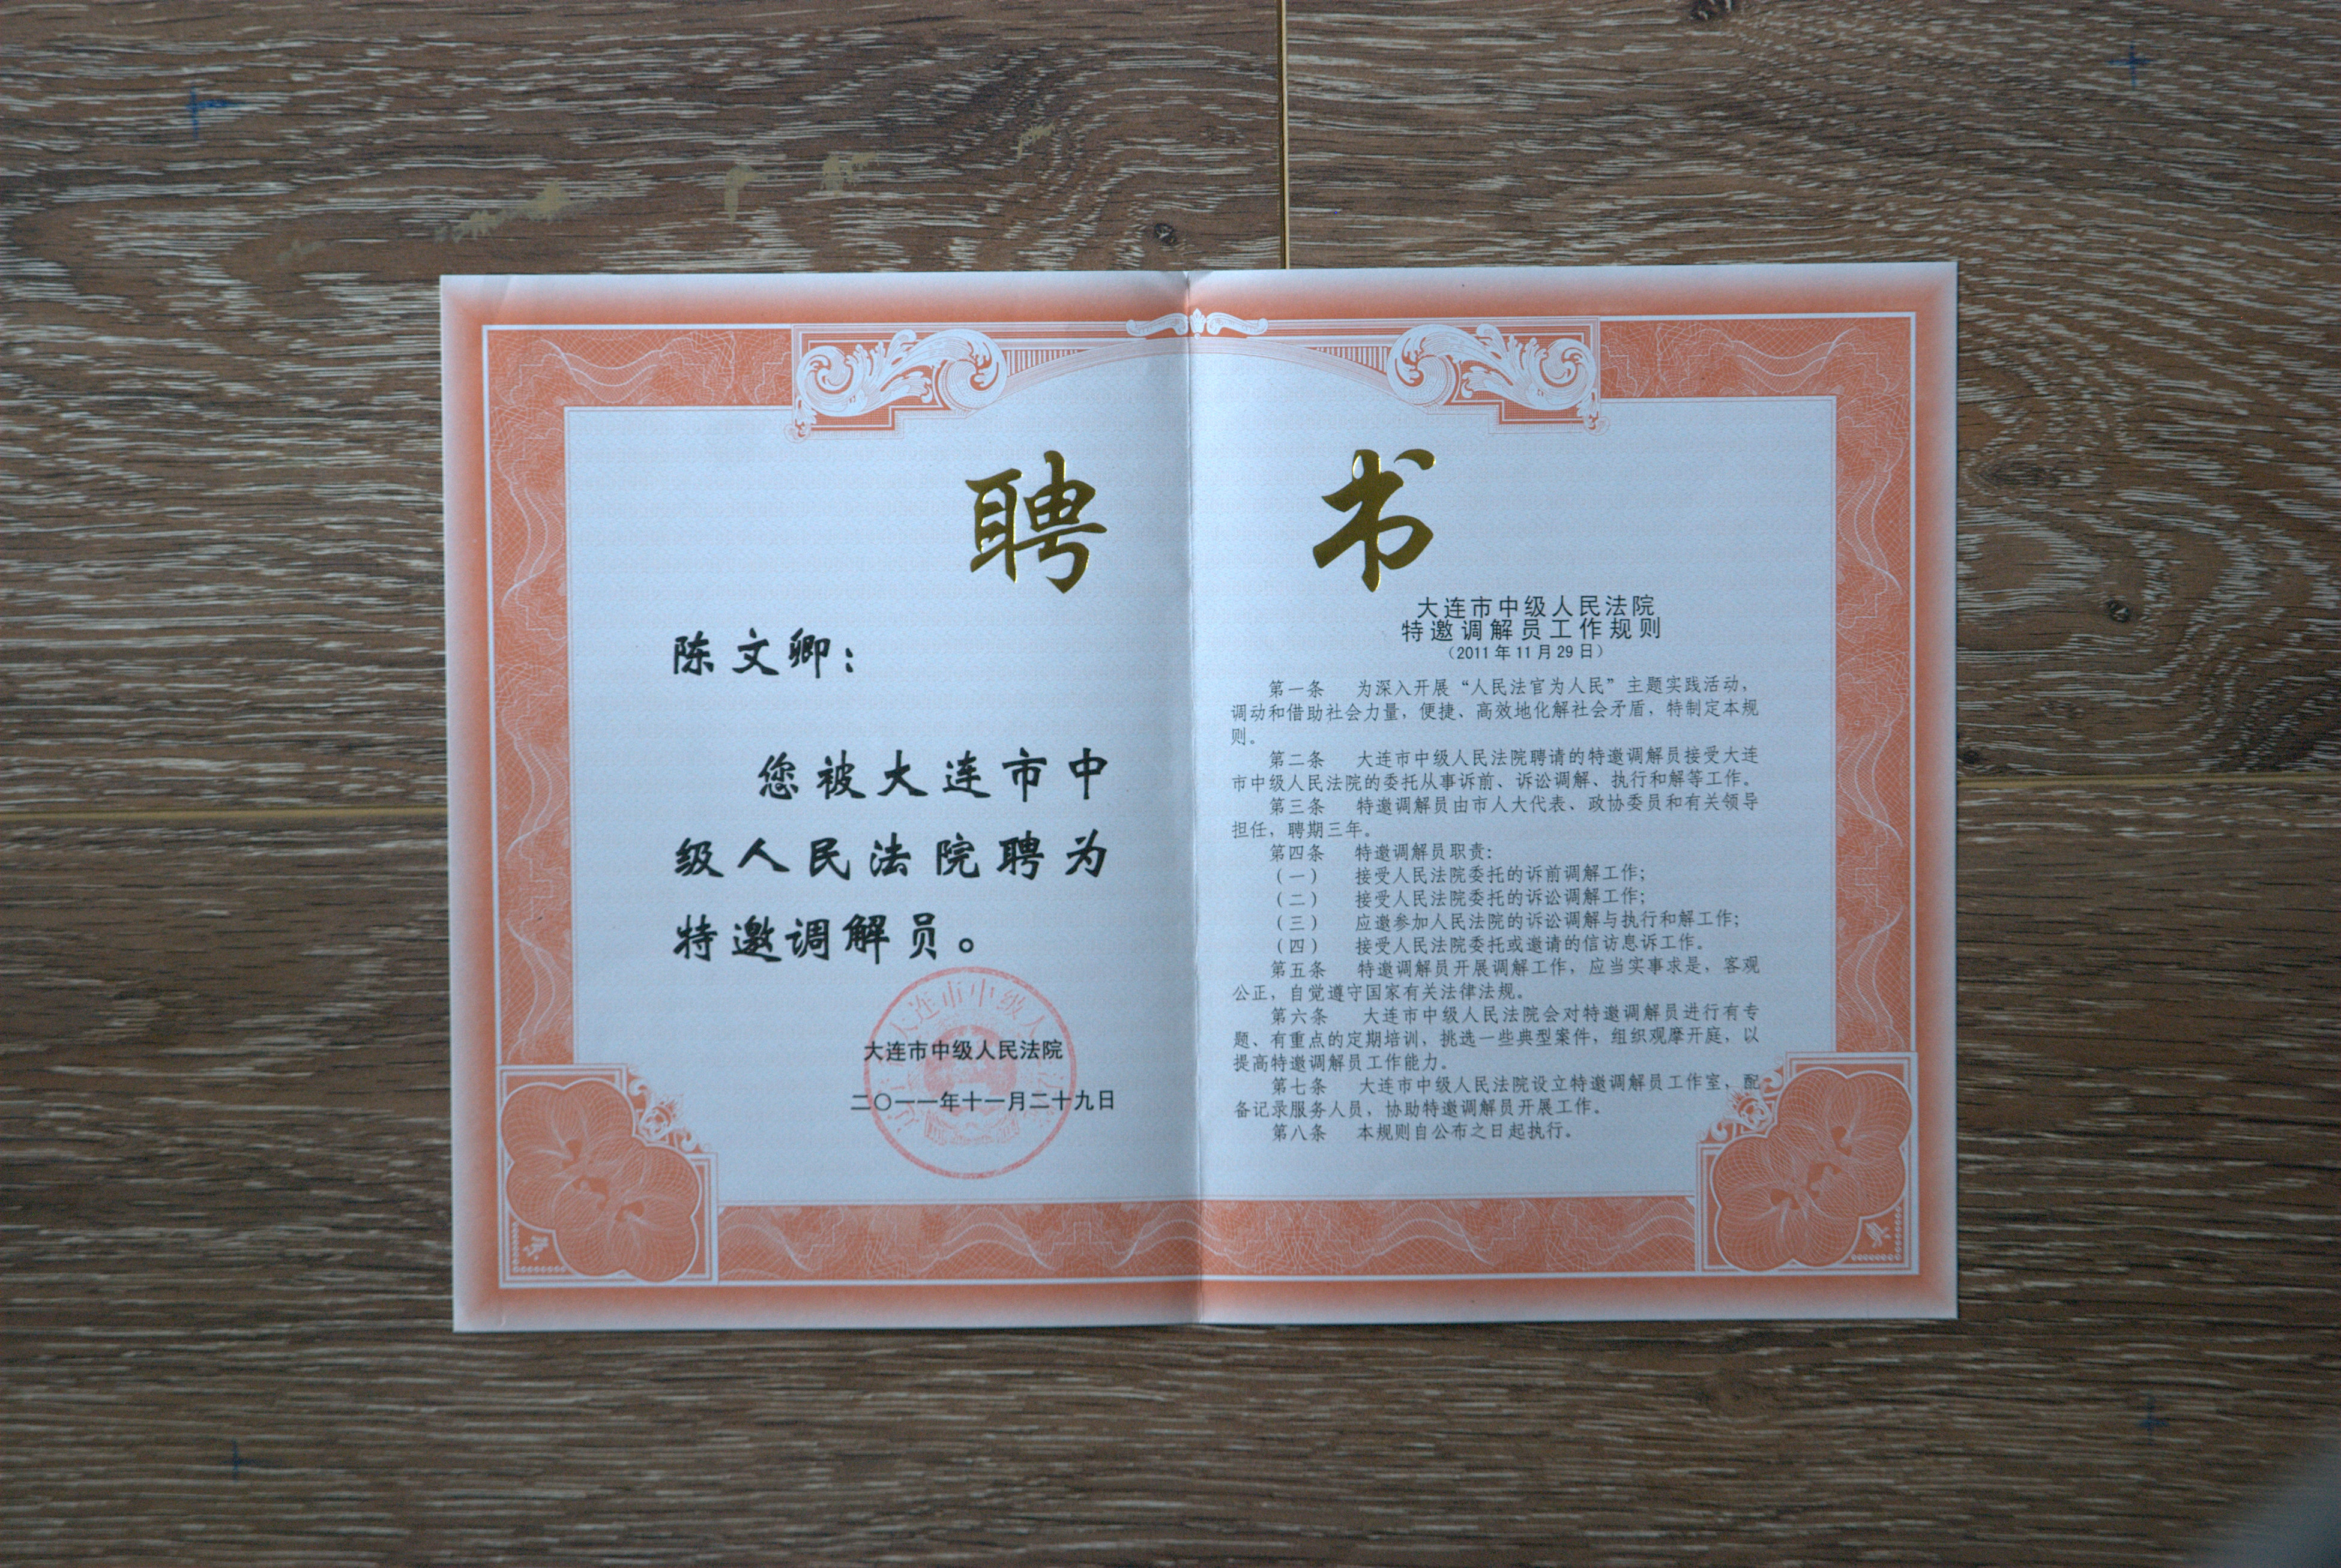 聘书
陈文卿：
您被大连市中
级人民法院聘为
特邀调解员。
大连市中级人民法院
二〇一一年十一月二十九日
大连市中级人民法院
特邀调解员工作规则
（2011年11月29日）
第一条 为深入开展“人民法官为人民”主题实践活动，
调动和借助社会力量，便捷、高效地化解社会矛盾，特制定本规
则。
第二条 大连市中级人民法院聘请的特邀调解员接受大连
市中级人民法院的委托从事诉前、诉讼调解、执行和解等工作。
第三条 特邀调解员由市人大代表、政协委员和有关领导
担任，聘期三年。
第四条 特邀调解员职责：
（一） 接受人民法院委托的诉前调解工作；
（二） 接受人民法院委托的诉讼调解工作；
（三） 应邀参加人民法院的诉讼调解与执行和解工作；
（四） 接受人民法院委托或邀请的信访息诉工作。
第五条 特邀调解员开展调解工作，应当实事求是，客观
公正，自觉遵守国家有关法律法规。
第六条 大连市中级人民法院会对特邀调解员进行有专
题、有重点的定期培训，挑选一些典型案件，组织观摩开庭，以
提高特邀调解员工作能力。
第七条 大连市中级人民法院设立特邀调解员工作室，配
备记录服务人员，协助特邀调解员开展工作。
第八条 本规则自公布之日起执行。